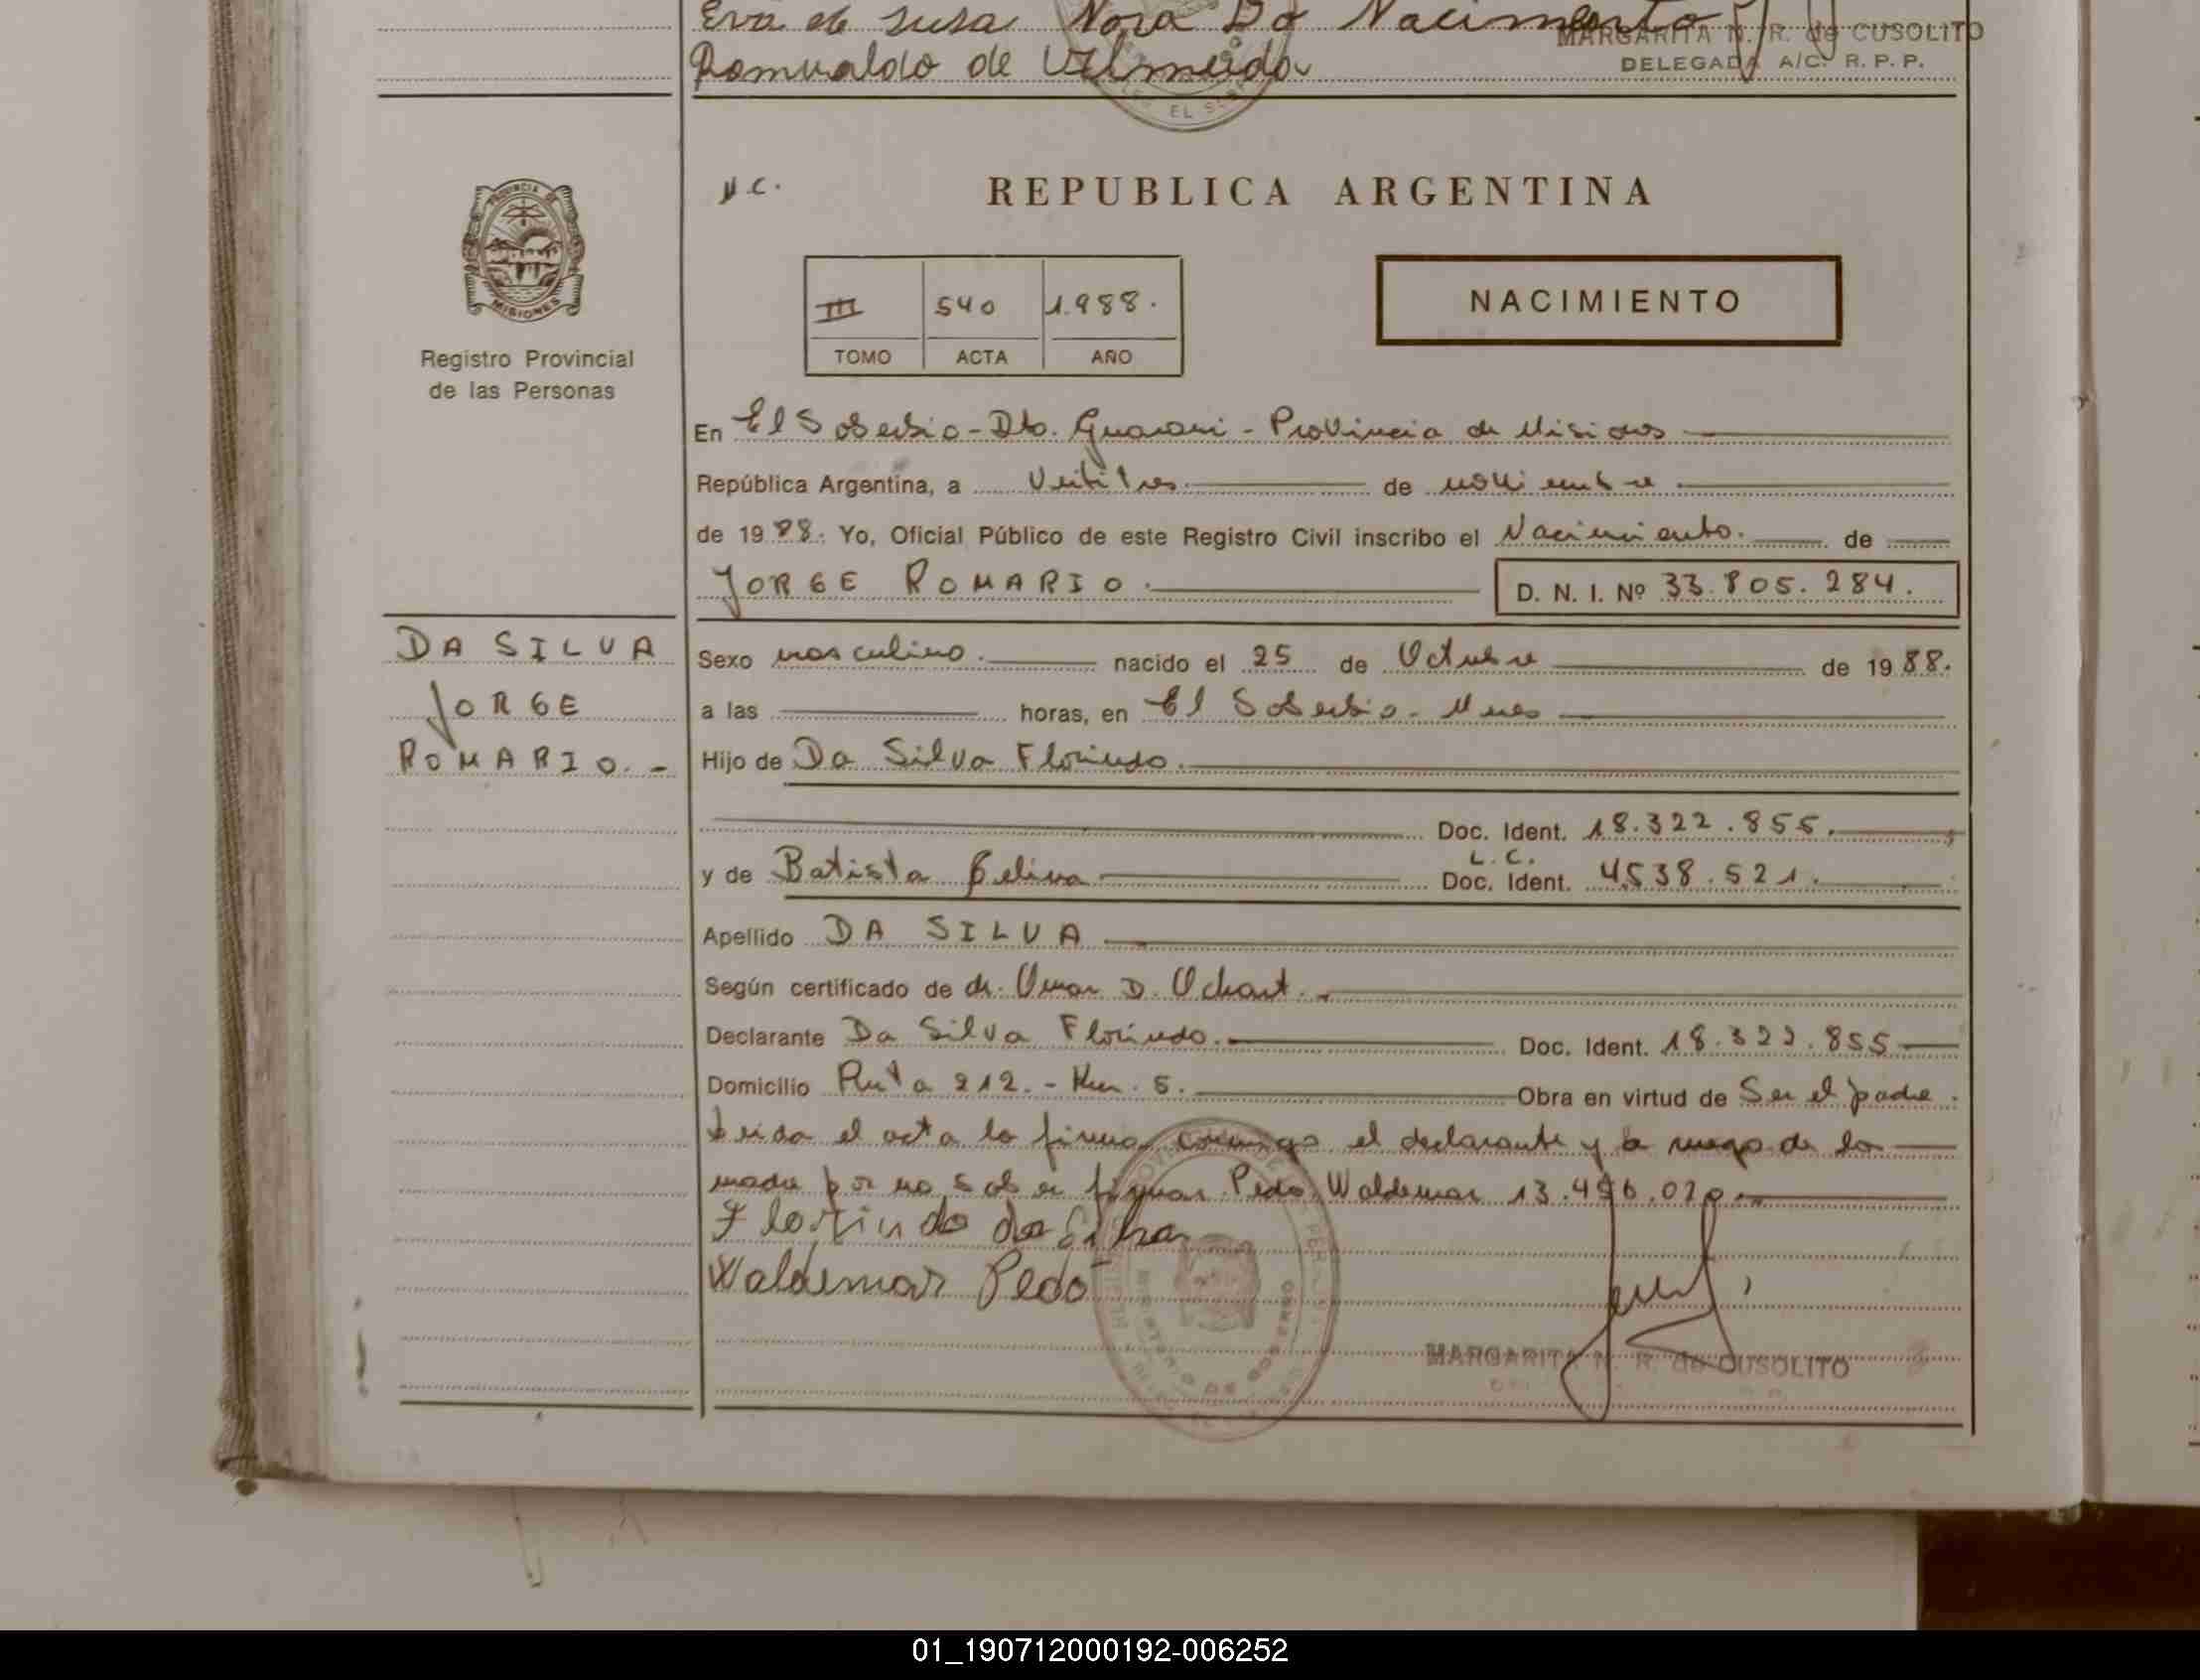 Eva de susa Nora Da Nacimento
MARGARITA N. R. de CUSOLITO
Romualdo de
DELEGADA A/C. R. P. P.
EL
PROVINCIA DE
MISIONES
Registro Provincial
de las Personas
N.C.
REPUBLICA ARGENTINA
III 540 1.988.
TOMO ACTA AÑO
NACIMIENTO
En El Soberbio - Dto. Guarani - Provincia de Misiones
República Argentina, a Veintitres de noviembre
de 1988. Yo, Oficial Público de este Registro Civil inscribo el Nacimiento. de
JORGE ROMARIO. D. N. I. Nº 33.805.284.
DA SILVA
JORGE
ROMARIO. -
Sexo masculino. nacido el 25 de Octubre de 1988.
a las horas, en El Soberbio - Mnes
Hijo de Da Silva Florindo.
Doc. Ident. 18.322.855.
L. C.
y de Batista Celina Doc. Ident. 4.538.521.
Apellido DA SILVA
Según certificado de dr. Omar D. Ochart.
Declarante Da Silva Florindo. Doc. Ident. 18.322.855
Domicilio Ruta 212. - Km. 5. Obra en virtud de Ser el padre.
Leida el acta la firma conmigo el declarante y a ruego de la
madre por no saber firmar Pedo Waldemar 13.496.020
Florindo da Silva
Waldemar Pedo
MARGARITA N. R. de CUSOLITO
01_190712000192-006252